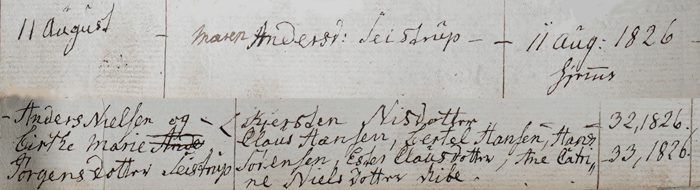 11 August – maren Andersd: Seistrup – – 11 Aug: 1826 –
hjemme
– Anders Nielsen og – Kiersten Nisdotter 32, 1826.
Cirthe Marie Ande Claus Hansen, Certel Hansen, Hans 33, 1826
Jørgensdotter Seistrup Sørensen, Ester Clausdotter, Ane Catri„
ne Nielsdotter Ribe.